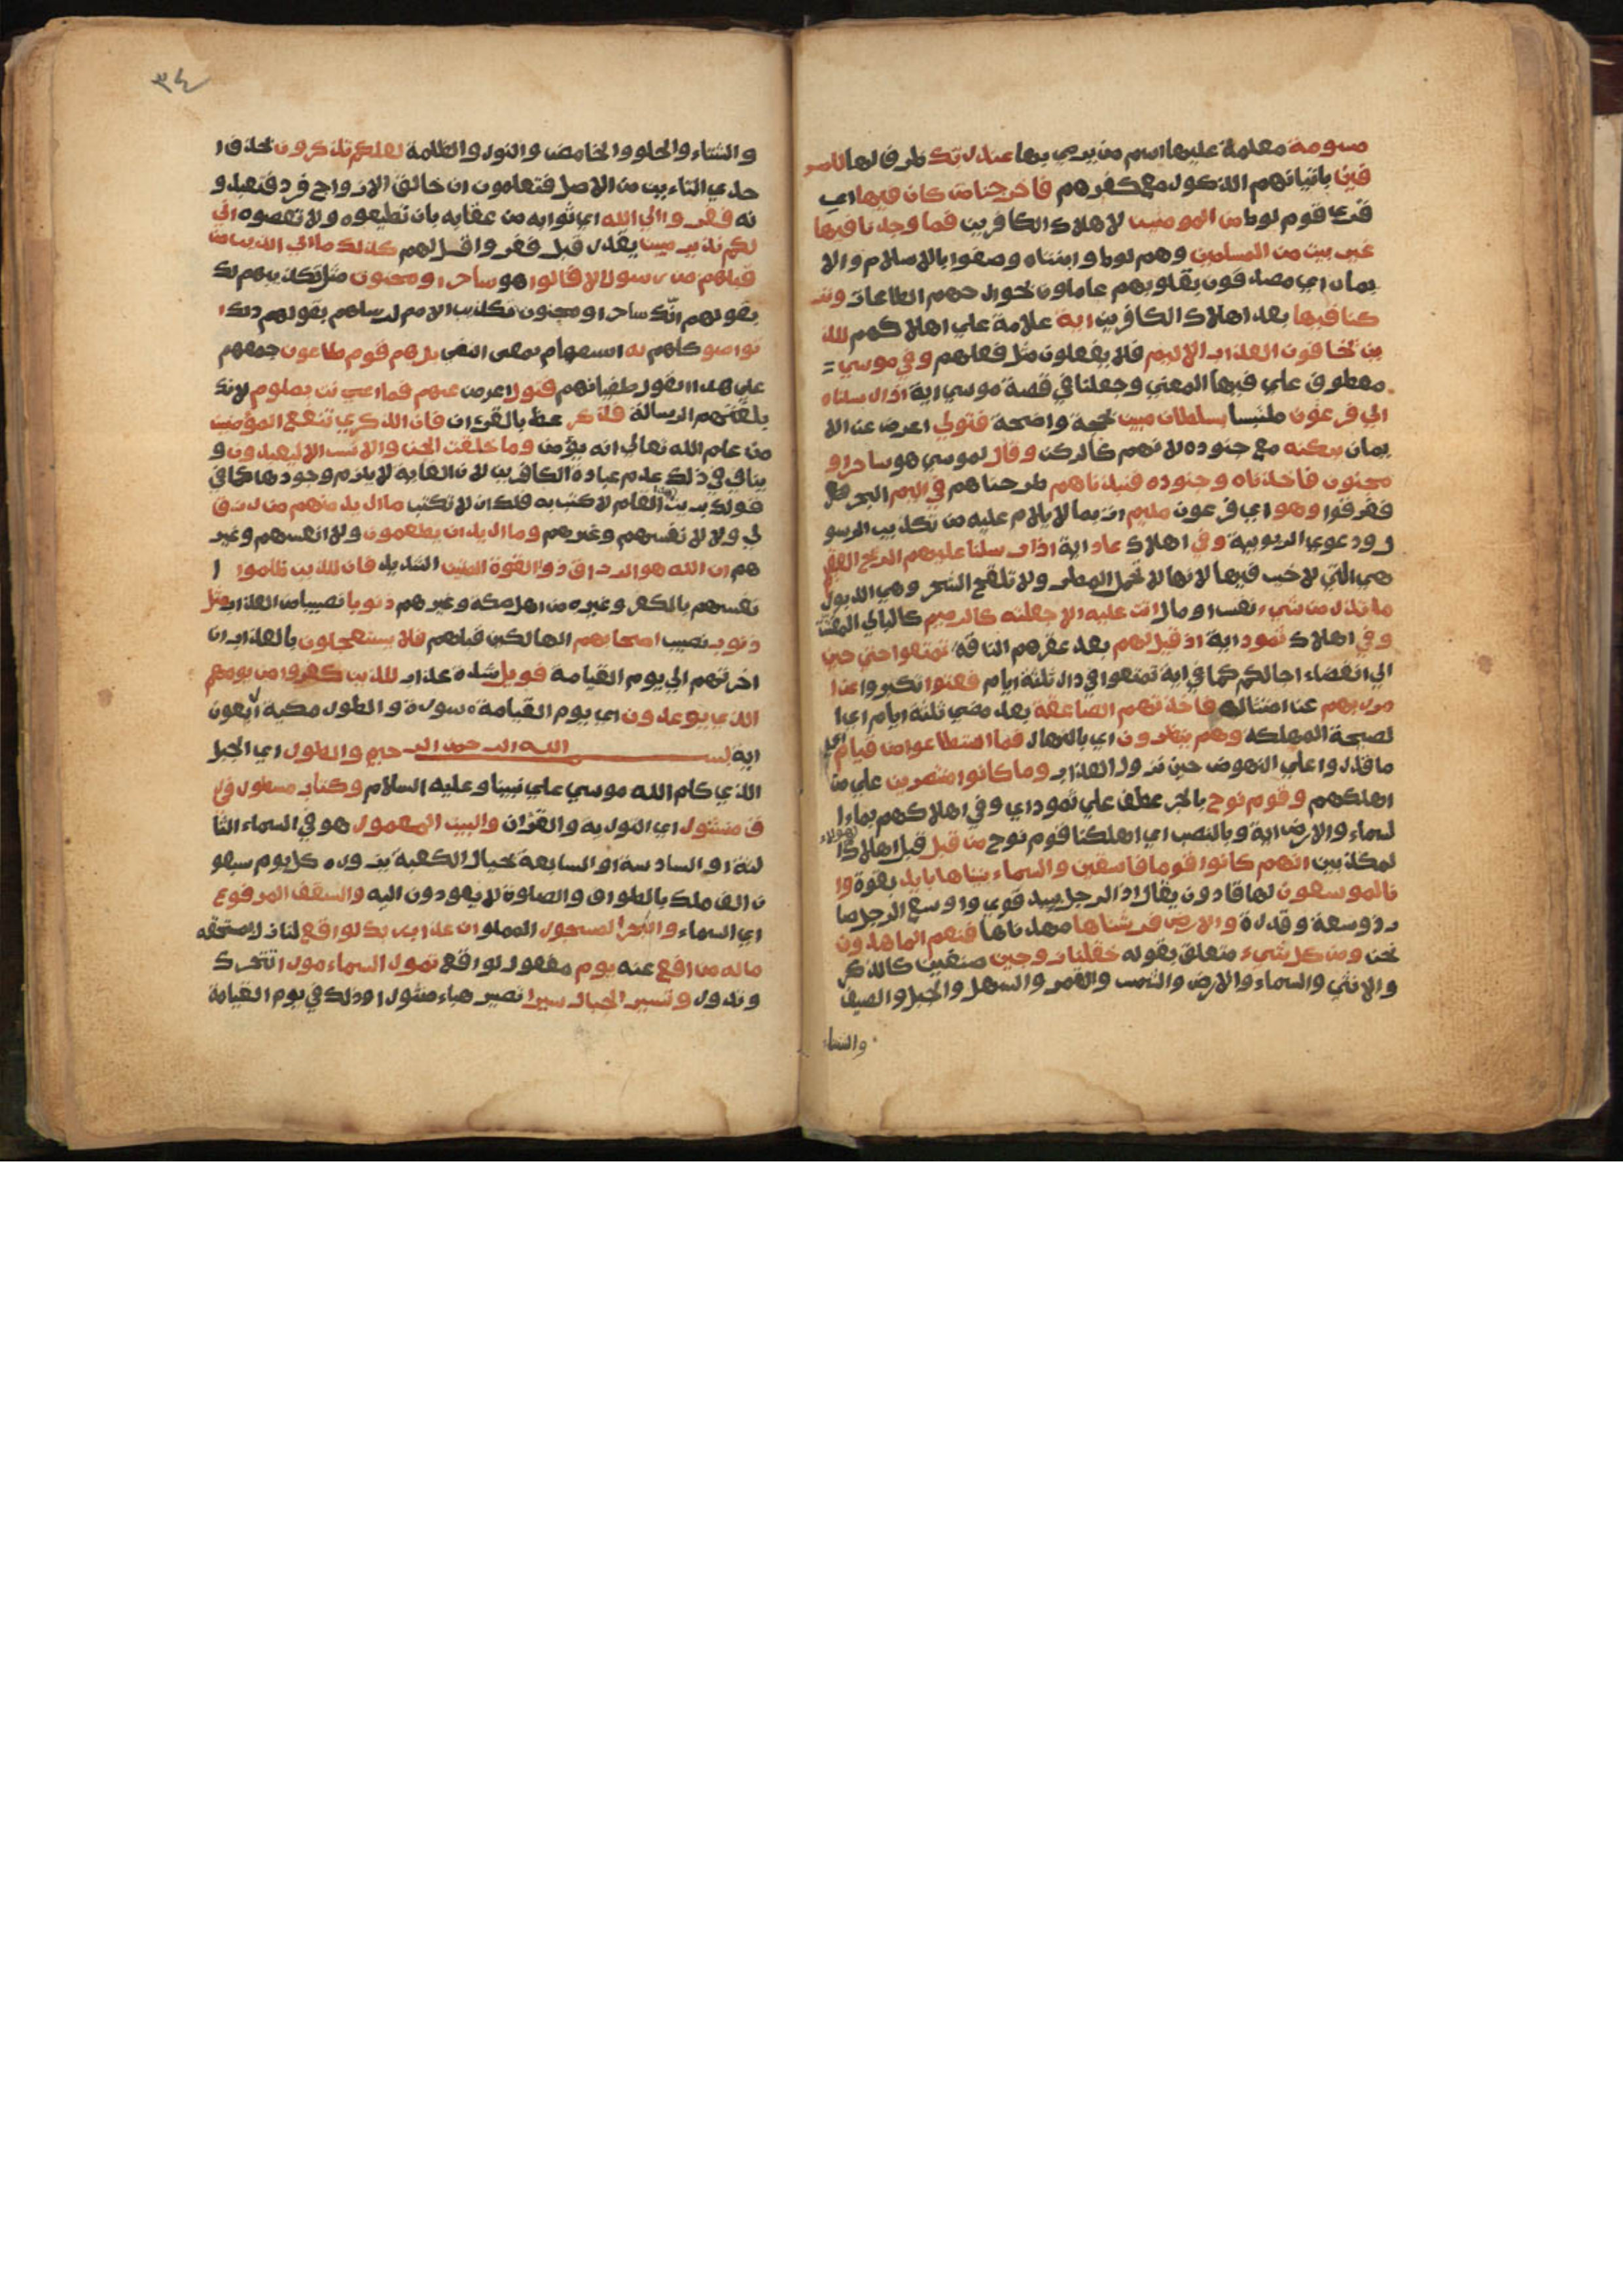 مسومة معلمة عليها اسم من يرمي بها عند ربك ظرف لها للمسر
فين باتيانهم الذكور مع كفرهم فاخرجنا من كان فيها اي
قري قوم لوط من المومنين لاهلاك الكافرين فما وجدنا فيها
غير بيت من المسلمين وهم لوط وابنتاه وصفوا بالاسلام والا
يمان اي مصدقون بقلوبهم عاملون بجوارحهم الطاعات وتر
كنا فيها بعد اهلاك الكافرين اية علامة علي اهلاكهم للذ
ين يخافون العذاب الاليم فلا يفعلون مثل فعلهم وفي موسي
معطوف علي فيها المعني وجعلنا في قصة موسي اية اذ ارسلناه
الي فرعون ملتبسا بسلطان مبين بحجة واضحة فتولي اعرض عن الا
يمان بركنه مع جنوده لانهم كالركن وقال لموسي هو ساحر او
مجنون فاخذناه وجنوده فنبذناهم طرحناهم في اليم البحر
فغرقوا وهو اي فرعون مليم ات بما لايلام عليه من تكذيب الرسو
ل ودعوي الربوبية وفي اهلاك عاد اية اذ ارسلنا عليهم الريح العقيم
هي التي لاخير فيها لانها لا تحمل المطر ولا تلقح الشجر وهي الدبور
ما تذر من شيء نفس او مال اتت عليه الا جعلته كالرميم كالبالي المفتت
وفي اهلاك ثمود اية اذ قيل لهم بعد عقرهم الناقة تمتعوا حتي حين
الي انقضاء اجالكم كما في اية تمتعوا في داركم ثلثة ايام فعتوا تكبروا عن ا
مر ربهم عن امتثاله فاخذتهم الصاعقة بعد مضي ثلثة ايام اي ا
لصيحة المهلكة وهم ينظرون اي بالنهار فما استطاعوا من قيام اي
ما قدروا علي النهوض حين نزول العذاب وما كانوا منتصرين علي من
اهلكهم وقوم نوح بالجر عطف علي ثمود اي وفي اهلاكهم بماء ا
لسماء والارض اية وبالنصب اي اهلكنا قوم نوح من قبل قبل اهلاك هولاء ا
لمكذبين انهم كانوا قوما فاسقين والسماء بنيناها بايد بقوة وا
نا لموسعون لها قادرون يقال اد الرجل يييد قوي واوسع الرجل صا
ر ذو سعة وقدرة والارض فرشناها مهدناها فنعم الماهدون
نحن ومن كل شيء متعلق بقوله خقلنا زوجين صنفين كالذكر
والانثي والسماء والارض والشمس والقمر والسهل والجبل والصيف
والشتاء
٣٤
والشتاء والحلو والحامض والنور والظلمة لعلكم تذكرون بحذف ا
حدي التاءين من الاصل فتعلمون ان خالق الازواج فرد فتعبدو
نه ففروا الي الله اي ثوابه من عقابه بان تطيعوه ولا تعصوه اني
لكم نذير مبين يقدر قبل ففروا قل لهم كذلك ما اتي الذين من
قبلهم من رسول الا قالوا هو ساحر او مجنون مثل تكذيبهم لك
بقولهم انك ساحر او مجنون تكذيب الامم لرسلهم بقولهم ذلك ا
تواصوا كلهم به استفهام بمعني النفي بل هم قوم طاغون جمعهم
علي هذا القول طغيانهم فتول اعرض عنهم فما انت بملوم لانك
بلغتهم الرسالة فذكر عظ بالقرءان فان الذكري تنفع المؤمنين
من علم الله تعالي انه يؤمن وما خلقت الجن والانس الا ليعبدون و
ينافي في ذلك عدم عبادة الكافرين لان الغاية لا يلزم وجودها كما في
قولك بريت القلم لاكتب به فلك ان لا تكتب ما اريد منهم من رزق
لي ولا لانفسهم وغيرهم وما اريد ان يطعمون ولا انفسهم وغير
هم ان الله هو الرزاق ذو القوة المتين الشديد فان للذين ظلموا ا
نفسهم بالكفر وغيره من اهل مكة وغيرهم ذنوبا نصيبا من العذاب مثل
ذنوب نصيب اصحابهم الهالكين قبلهم فلا يستعجلون بالعذاب ان
اخرتهم الي يوم القيامة فويل شدة عذاب للذين كفروا من يومهم
الذي يوعدون اي يوم القيامة سورة والطور مكية اربعون
اية بسم الله الرحمن الرحيم والطور اي الجبل
الذي كلم الله موسي علي نبينا وعليه السلام وكتاب مسطور في ر
ق منشور اي التورية والقرءان والبيت المعمور هو في السماء الثا
لثة او السادسة او السابعة بحيال الكعبة يزوره كل يوم سبعو
ن الف ملك بالطواف والصلوة لا يعودون اليه والسقف المرفوع
اي السماء والبحر المسجور المملو ان عذاب ربك لواقع لنازل لمستحقه
ماله من دافع عنه يوم معمول لواقع تمور السماء مورا تتحرك
وتدور وتسير الجبال سيرا تصير هباء منثورا وذلك في يوم القيامة